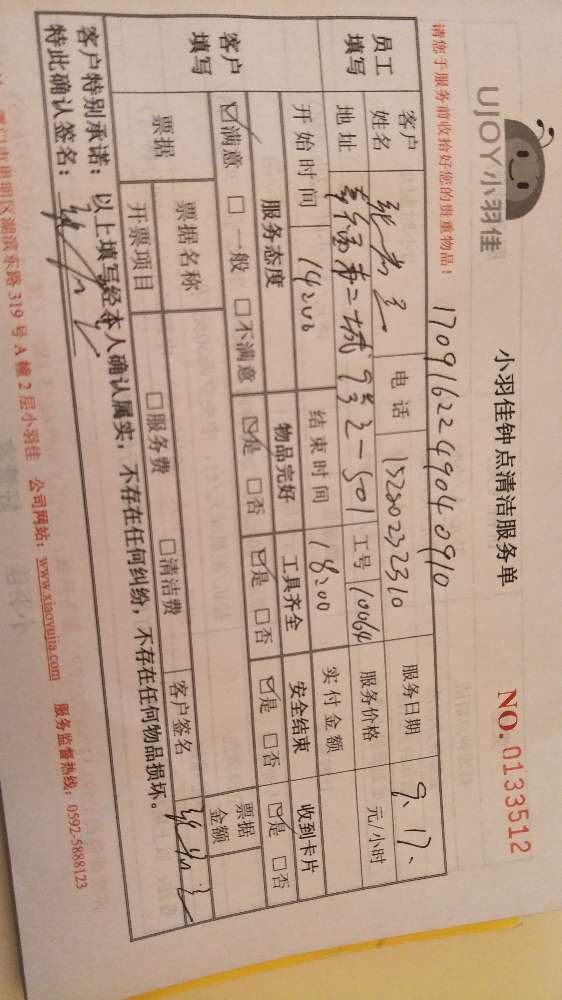 UJOY小羽佳
小羽佳钟点清洁服务单
NO. 0133512
请您于服务前收拾好您的贵重物品!
1709162249040910
员工填写
客户姓名
电话 15280232310
服务日期 9、17、
地址
二城 93 2-501
工号 10064
服务价格 元/小时
开始时间 14:00
结束时间 18:00
实付金额
客户填写
服务态度 物品完好 工具齐全 安全结束 收到卡片
☑满意 □一般 □不满意 ☑是 □否 ☑是 □否 ☑是 □否 ☑是 □否
票据
票据名称
票据金额
开票项目 □服务费 □清洁费 客户签名
客户特别承诺: 以上填写经本人确认属实, 不存在任何纠纷, 不存在任何物品损坏。
特此确认签名:
明区湖滨东路 319 号 A 幢 2 层小羽佳 公司网站: www.xiaoyujia.com 服务监督热线: 0592-5888123